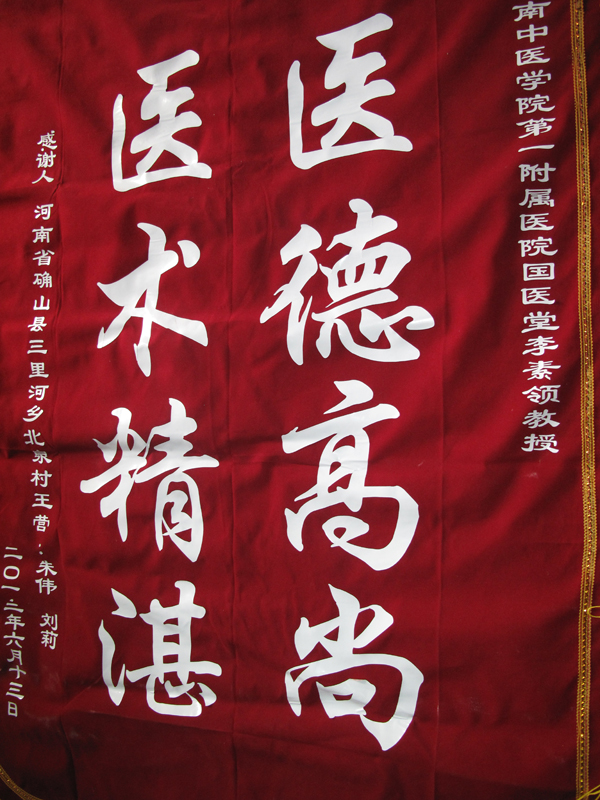 南中医学院第一附属医院国医堂李素领教授
医德高尚
医术精湛
感谢人 河南省确山县三里河乡北泉村王营：朱伟 刘莉
二〇一三年六月十三日